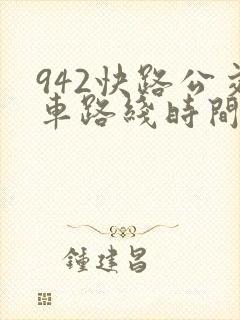 942快路公交
車路綫時間
鍾建昌